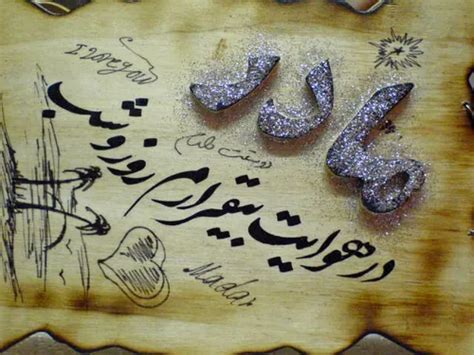 I love you
مادر
دوستت دارم
در هوایت بیقرارم روز و شب
Madar